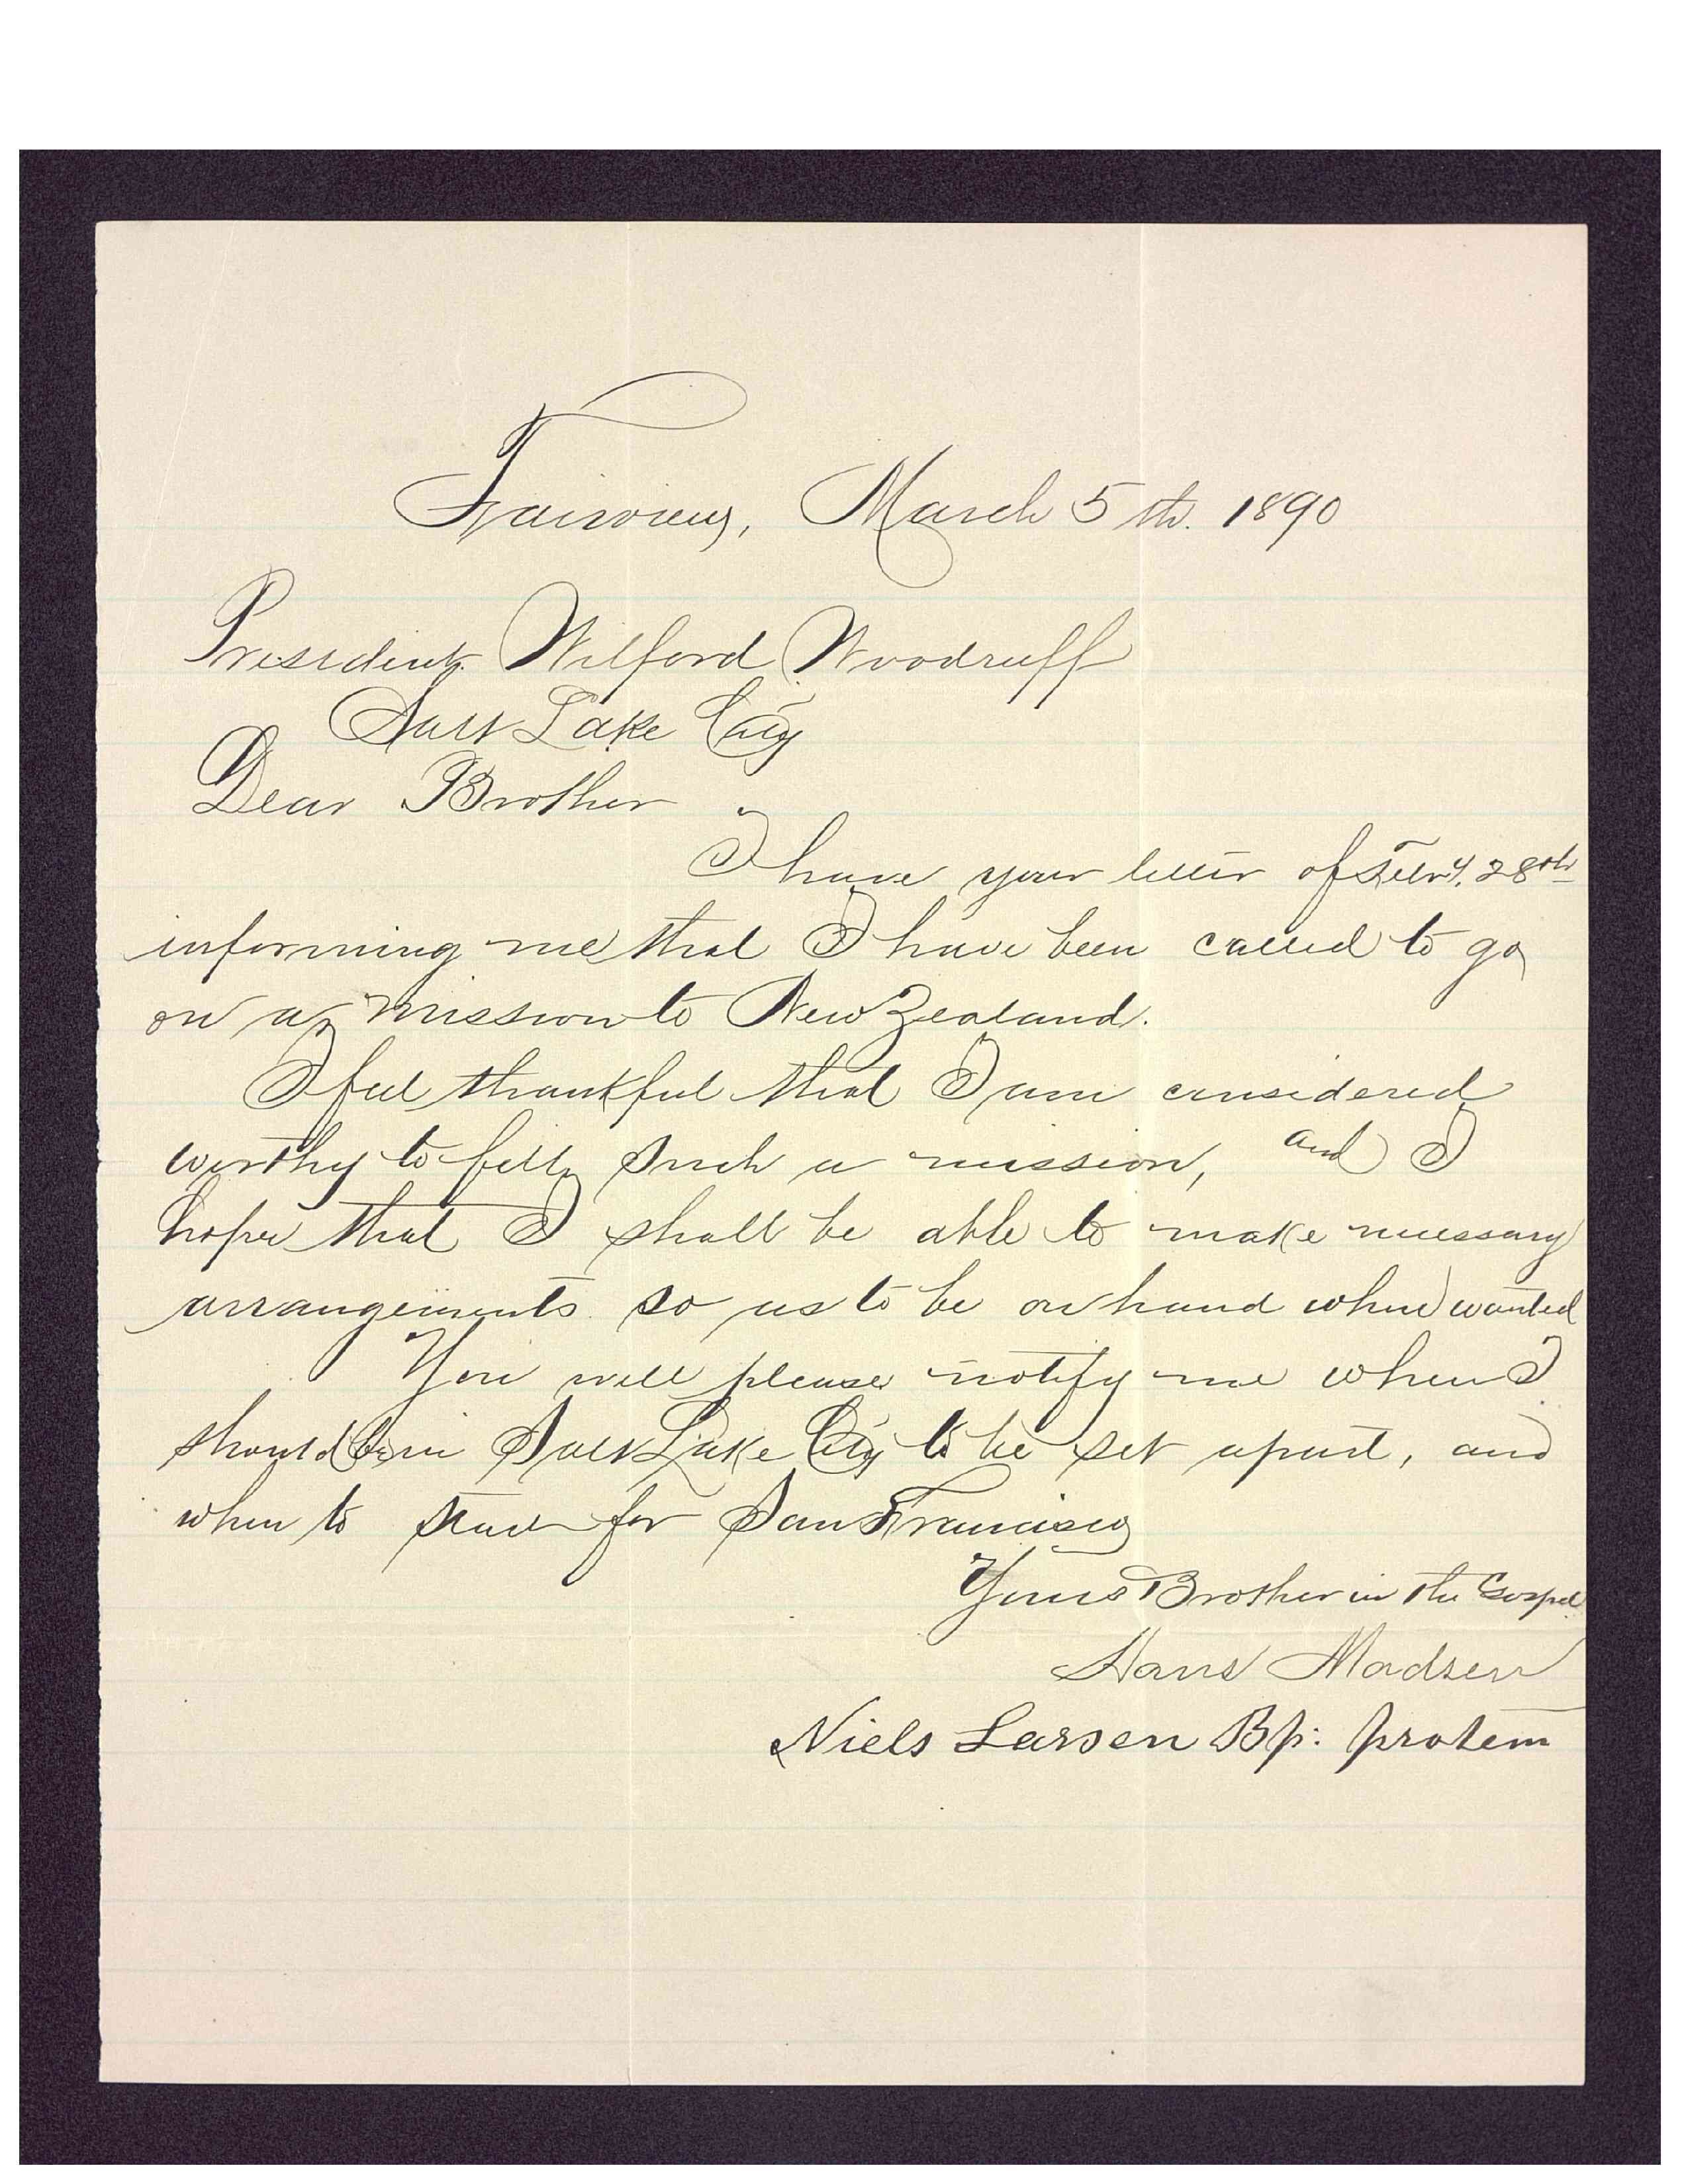 Fairview, March 5th. 1890
President Wilford Woodruff
Salt Lake City
Dear Brother
I have your letter of Febry. 28th
informing me that I have been called to go
on a mission to New Zealand.
I feel thankful that I am considered
worthy to fill such a mission, and I
hope that I shall be able to make necessary
arrangements so as to be on hand when wanted
You will please notify me when I
should be in Salt Lake City to be set apart, and
when to start for San Francisco
Yours Brother in the Gospel
Hans Madsen
Niels Larsen Bp: protem